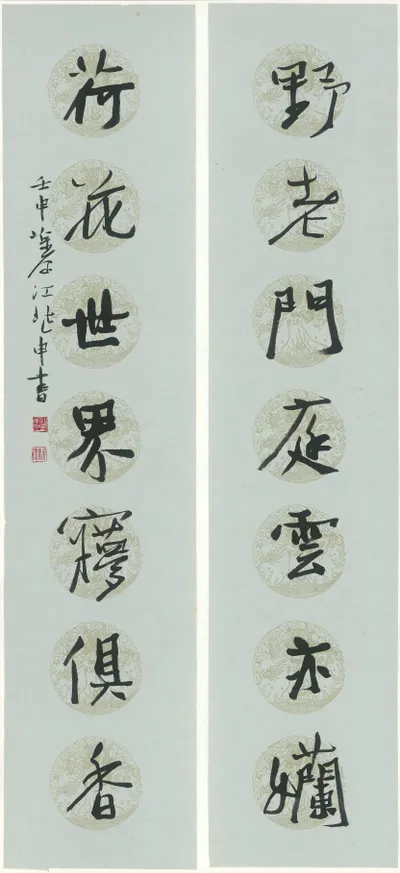 野老門庭雲亦孏
荷花世界㝱俱香
壬申 江兆申書